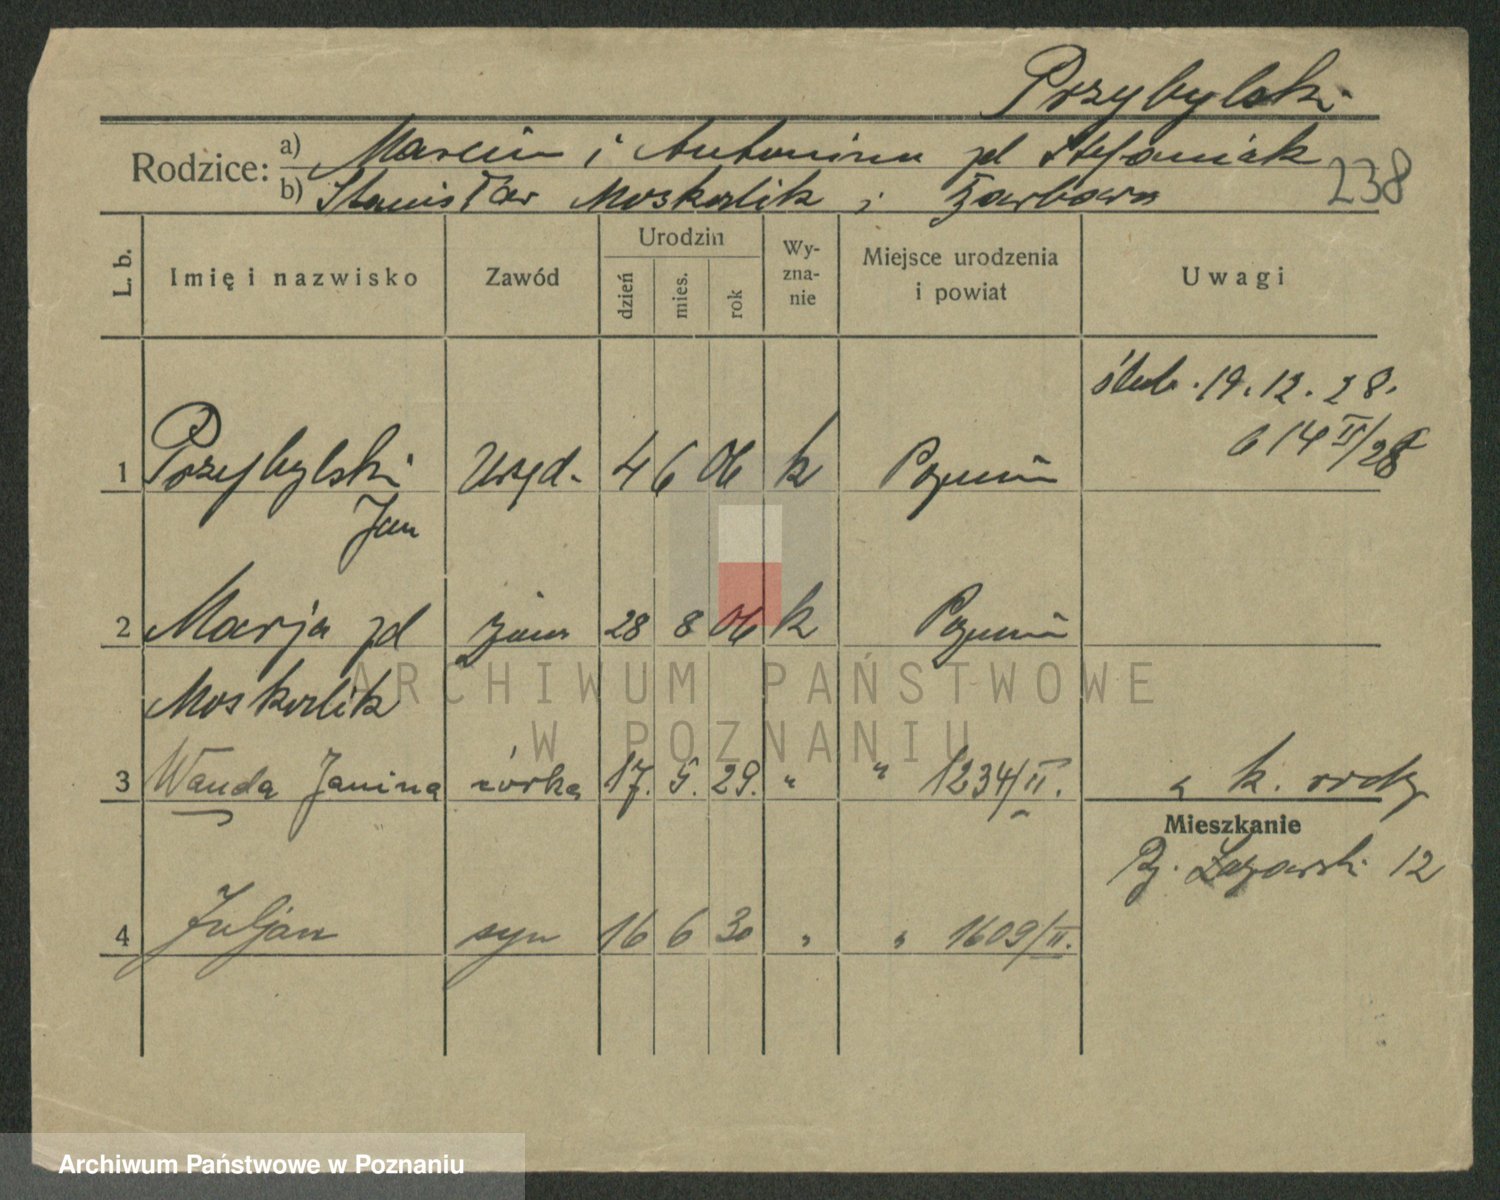 Przybylski
Rodzice: a) Marcin i Antonina zd Stefaniak
238
b) Stanisław Moskalik i Barbara
L. b.
Imię i nazwisko
Zawód
Urodzin
dzień
mies.
rok
Wy-
zna-
nie
Miejsce urodzenia
i powiat
Uwagi
ślub. 19.12.28.
614 II/28
1 Przybylski Urzęd. 4 6 06 k Poznań
Jan
2 Marja zd żona 28 8 06 k Poznań
Moskalik
3 Wanda Janina córka 17. 5. 29. " " 1234/II.
k.
Mieszkanie
Łazarski 12
4 Juljan syn 16 6 30 " " 1609/II.
ARCHIWUM PAŃSTWOWE
W POZNANIU
Archiwum Państwowe w Poznaniu